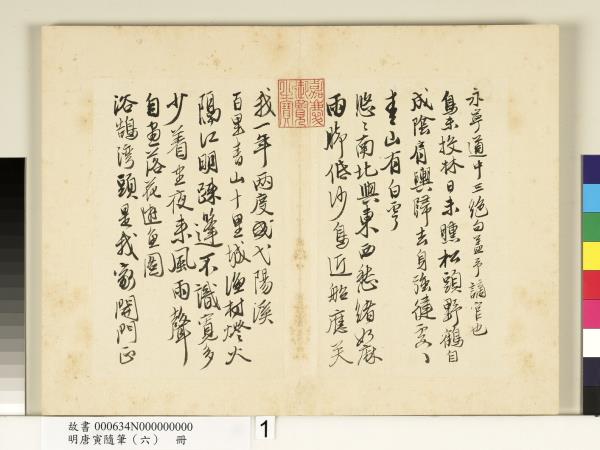 永寧道中三絕句蓋予謫官也
鳥未投林日未曛松頭野鶴自
成陰肩輿歸去身強健處處
青山有白雲
悠悠南北與東西愁緒如麻
雨腳低沙鳥近船應笑
嘉慶御覽之寶
我一年兩度弋陽溪
百里青山十里城漁村燈火
隔江明疎篷不識寬多
少着盡夜來風雨聲
自畫落花遊魚圖
浴鵠灣頭是我家開門正
故書 000634N000000000
明唐寅隨筆（六） 冊
1